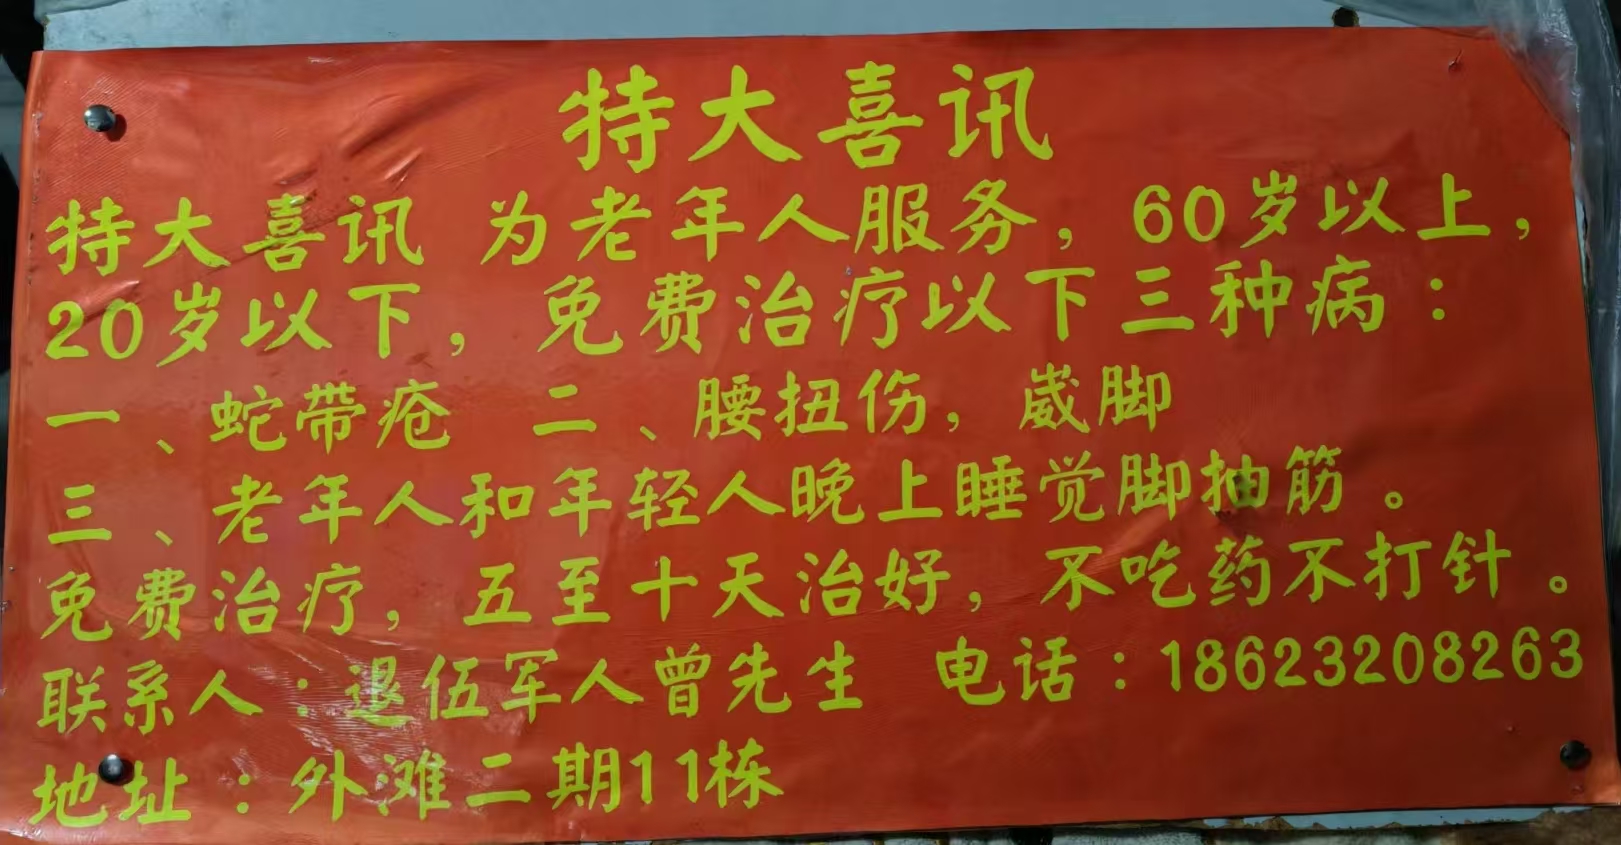 特大喜讯
特大喜讯 为老年人服务，60岁以上，
20岁以下，免费治疗以下三种病：
一、蛇带疮 二、腰扭伤，崴脚
三、老年人和年轻人晚上睡觉脚抽筋。
免费治疗，五至十天治好，不吃药不打针。
联系人：退伍军人曾先生 电话：18623208263
地址：外滩二期11栋